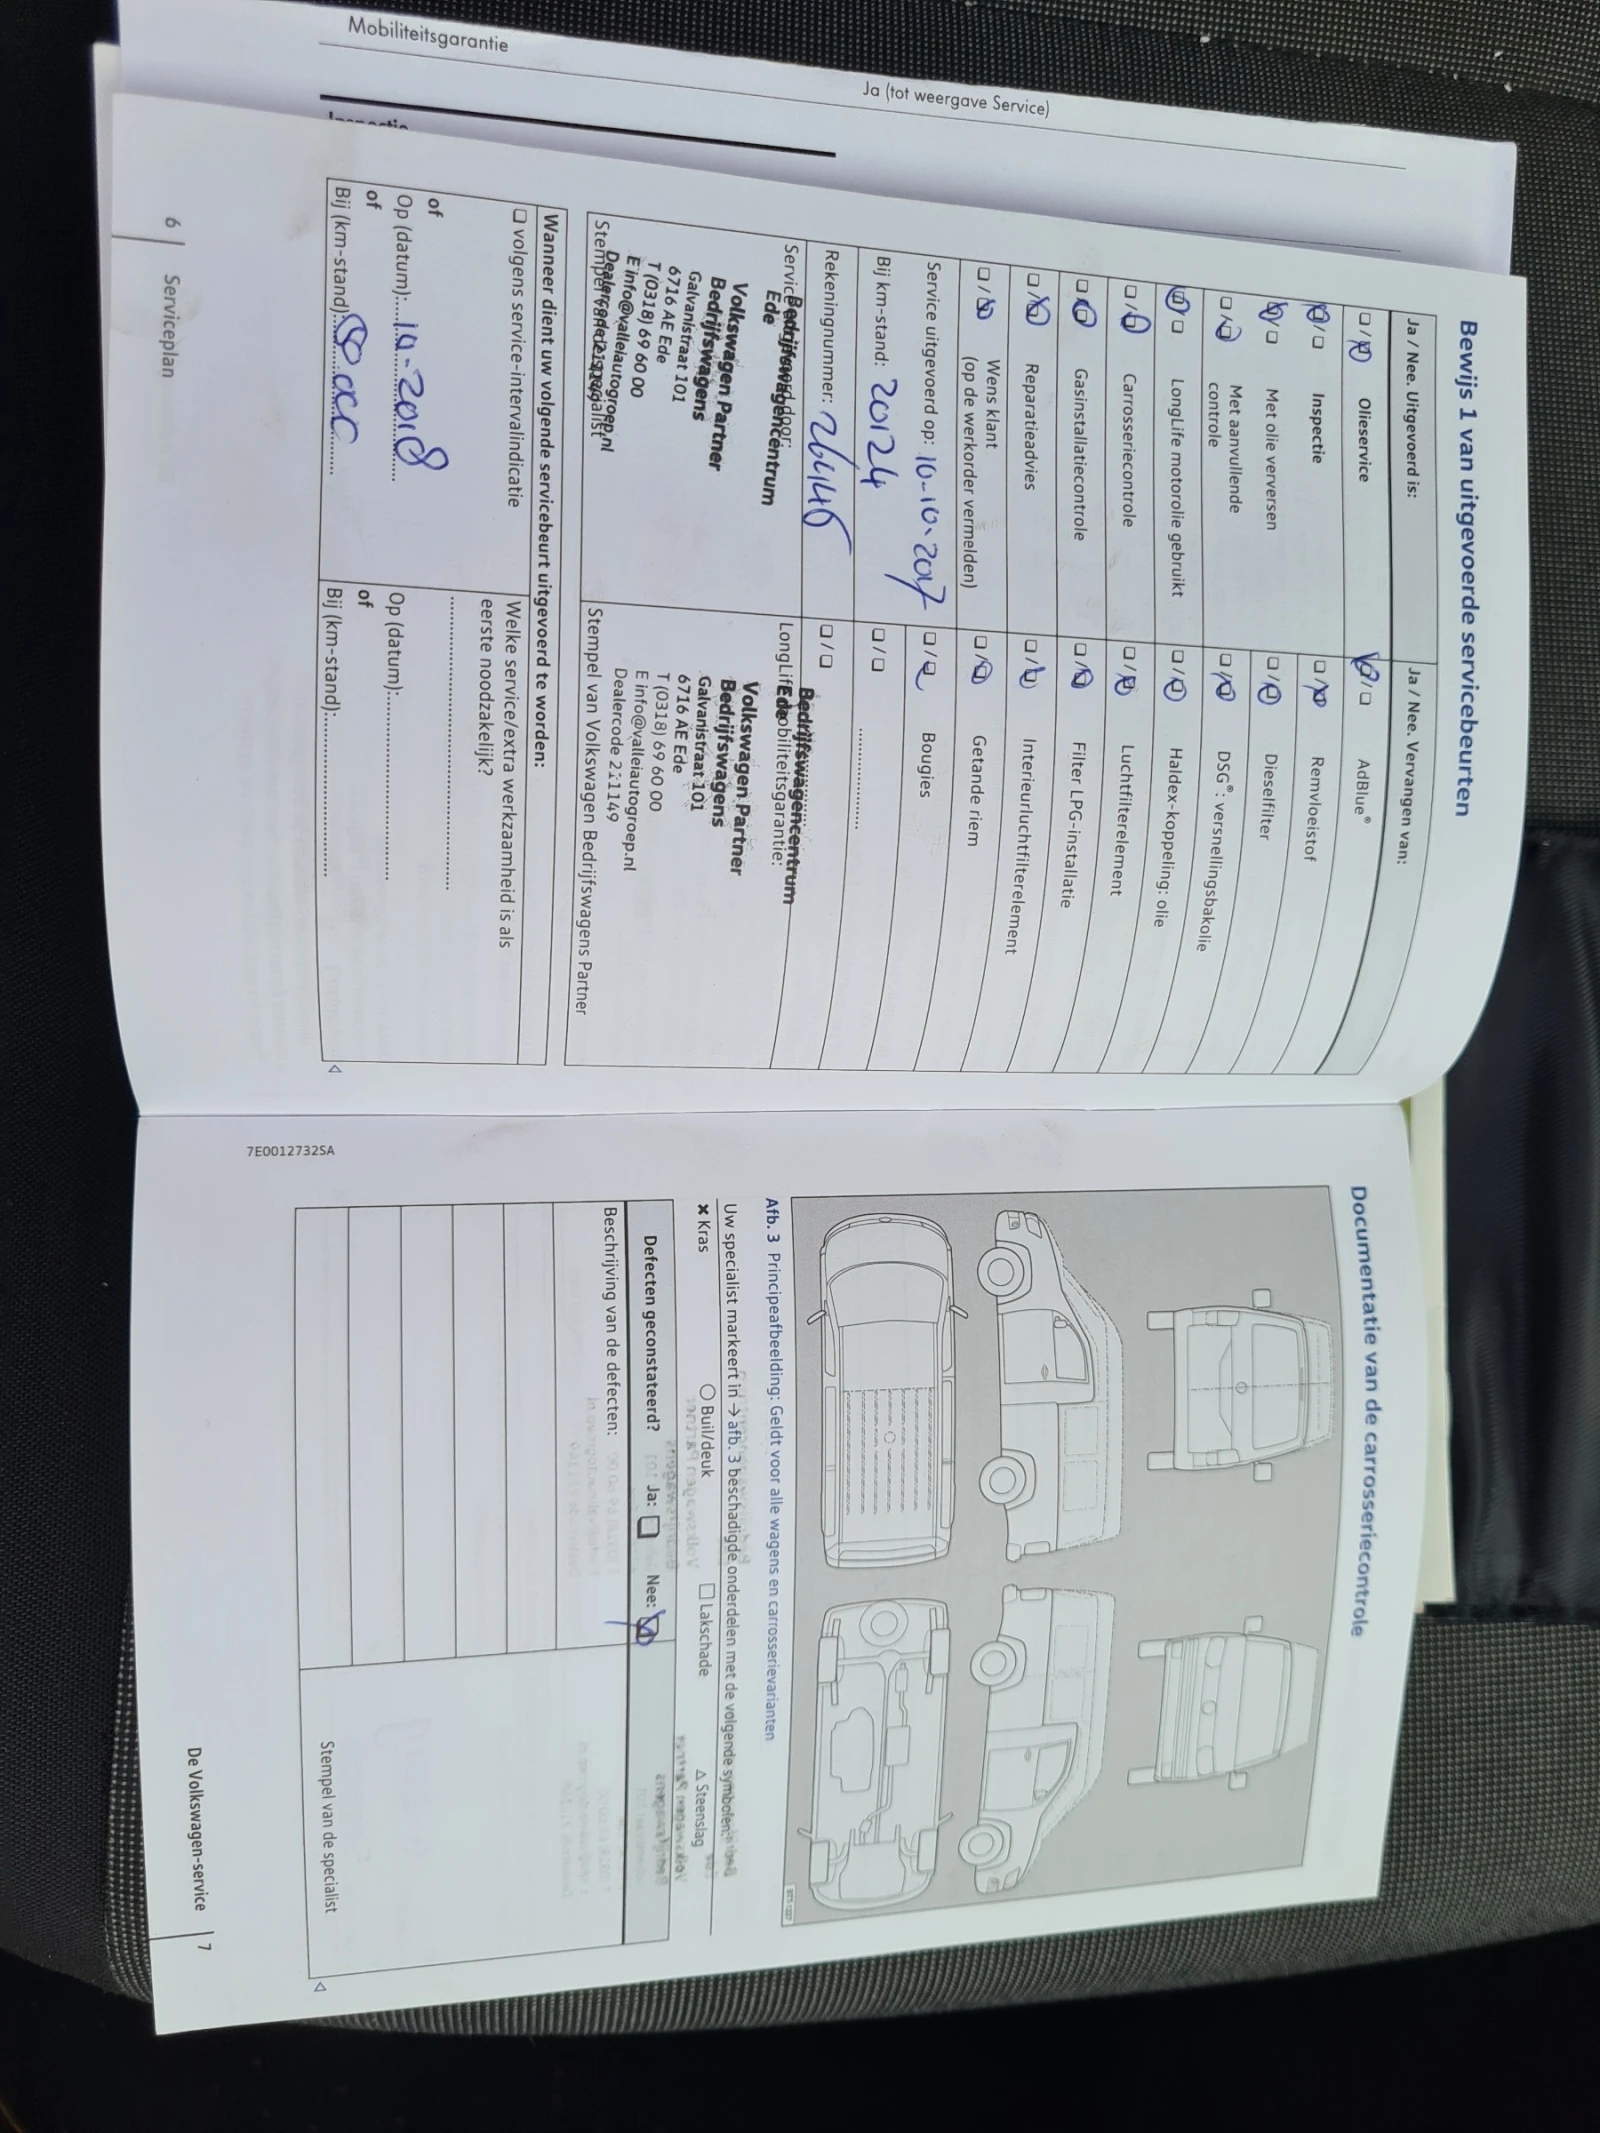 Mobiliteitsgarantie
Ja (tot weergave Service)
Inspectie
Bewijs 1 van uitgevoerde servicebeurten
Ja / Nee. Uitgevoerd is:
Ja / Nee. Vervangen van:
Olieservice
AdBlue®
Inspectie
Remvloeistof
Met olie verversen
Dieselfilter
Met aanvullende controle
DSG®: versnellingsbakolie
LongLife motorolie gebruikt
Haldex-koppeling: olie
Carrosseriecontrole
Luchtfilterelement
Gasinstallatiecontrole
Filter LPG-installatie
Reparatieadvies
Interieurluchtfilterelement
Wens klant
(op de werkorder vermelden)
Getande riem
Service uitgevoerd op: 10-10-2017
Bougies
Bij km-stand: 20124
Rekeningnummer: 26446
Service uitgevoerd door:
Bedrijfswagencentrum
Ede
Volkswagen Partner
Bedrijfswagens
Galvanistraat 101
6716 AE Ede
T (0318) 69 60 00
E info@valleiautogroep.nl
Dealercode 211149
Stempel van de specialist
LongLife mobiliteitsgarantie:
Bedrijfswagencentrum
Ede
Volkswagen Partner
Bedrijfswagens
Galvanistraat 101
6716 AE Ede
T (0318) 69 60 00
E info@valleiautogroep.nl
Dealercode 211149
Stempel van Volkswagen Bedrijfswagens Partner
Wanneer dient uw volgende servicebeurt uitgevoerd te worden:
volgens service-intervalindicatie
of
Op (datum): 10-2018
of
Bij (km-stand):
Welke service/extra werkzaamheid is als
eerste noodzakelijk?
Op (datum):
of
Bij (km-stand):
6 Serviceplan
Documentatie van de carrosseriecontrole
Afb. 3 Principeafbeelding: Geldt voor alle wagens en carrosserievarianten
Uw specialist markeert in → afb. 3 beschadigde onderdelen met de volgende symbolen:
✖ Kras
○ Buil/deuk
□ Lakschade
△ Steenslag
Defecten geconstateerd? Ja: Nee:
Beschrijving van de defecten:
Stempel van de specialist
7E0012732SA
De Volkswagen-service 7